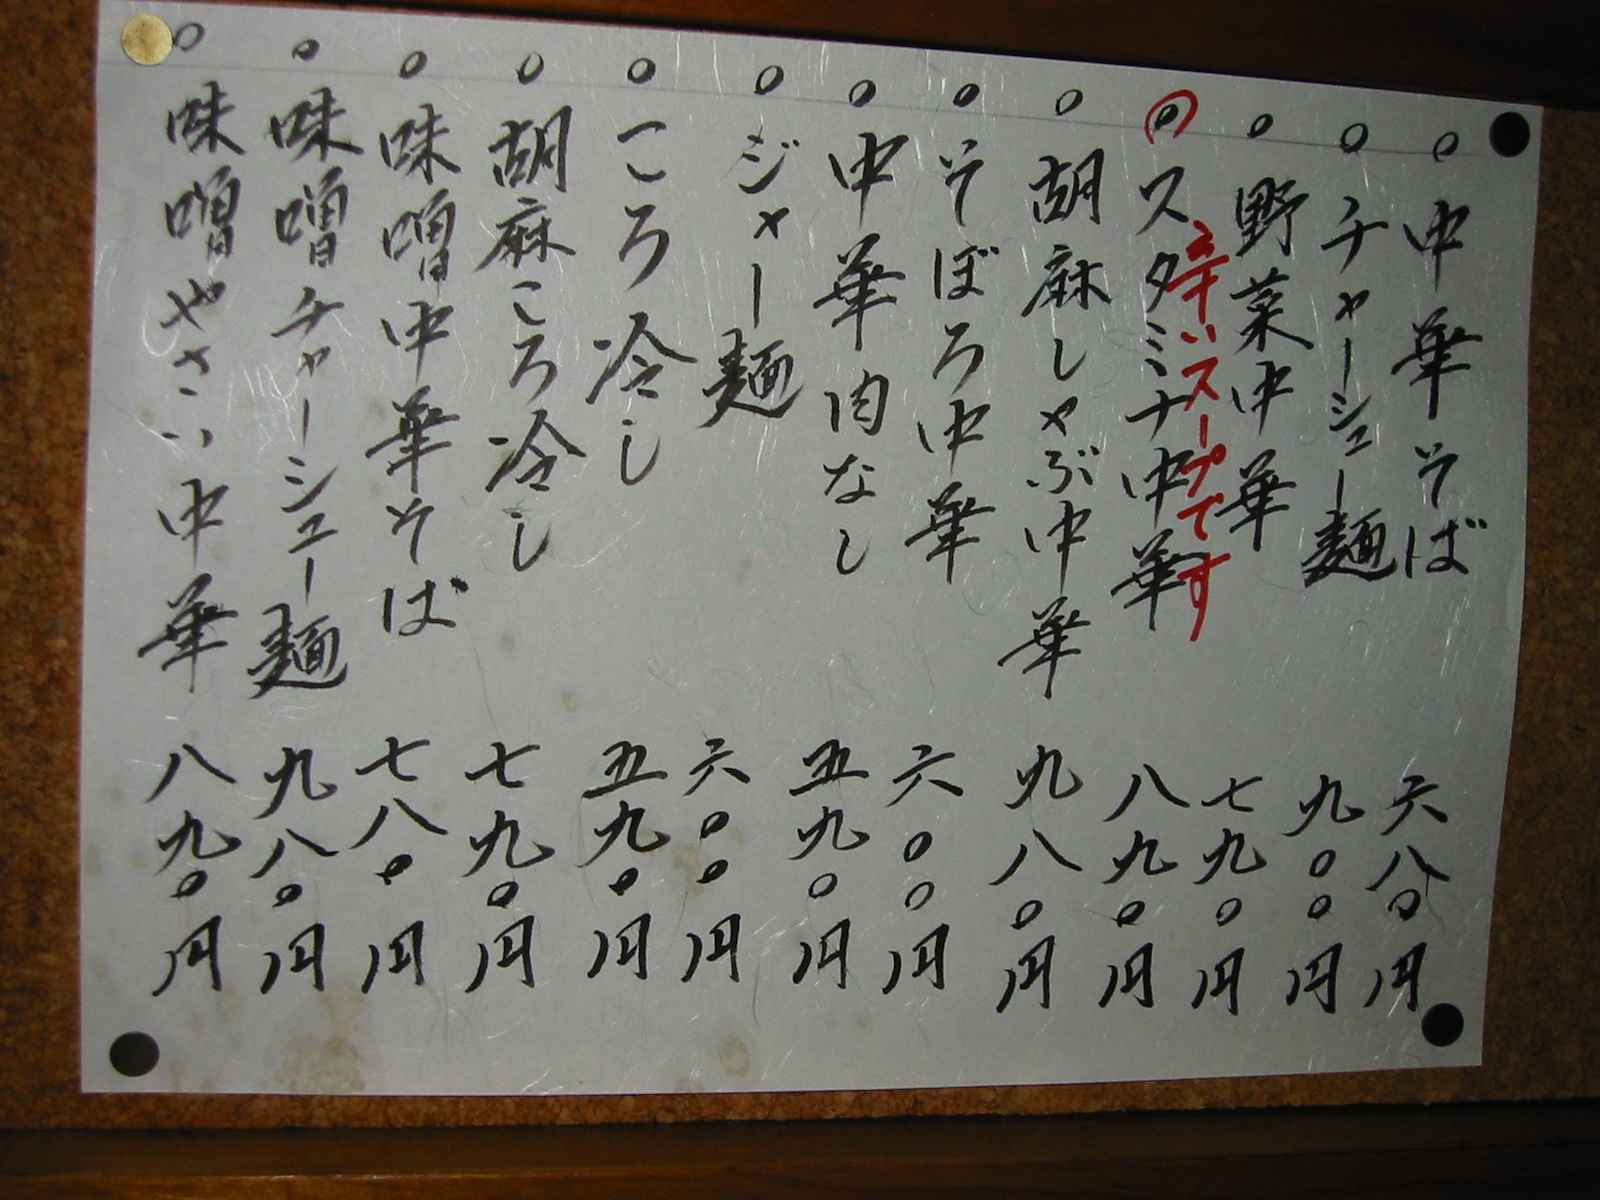 。中華そば 六八〇円
。チャーシュー麺 九〇〇円
。野菜中華 七九〇円
。スタミナ中華 八九〇円
辛いスープです
。胡麻しゃぶ中華 九八〇円
。そぼろ中華 六〇〇円
。中華肉なし 五九〇円
。ジャー麺 六〇〇円
。ころ冷し 五九〇円
。胡麻ころ冷し 七九〇円
。味噌中華そば 七八〇円
。味噌チャーシュー麺 九八〇円
。味噌やさい中華 八九〇円